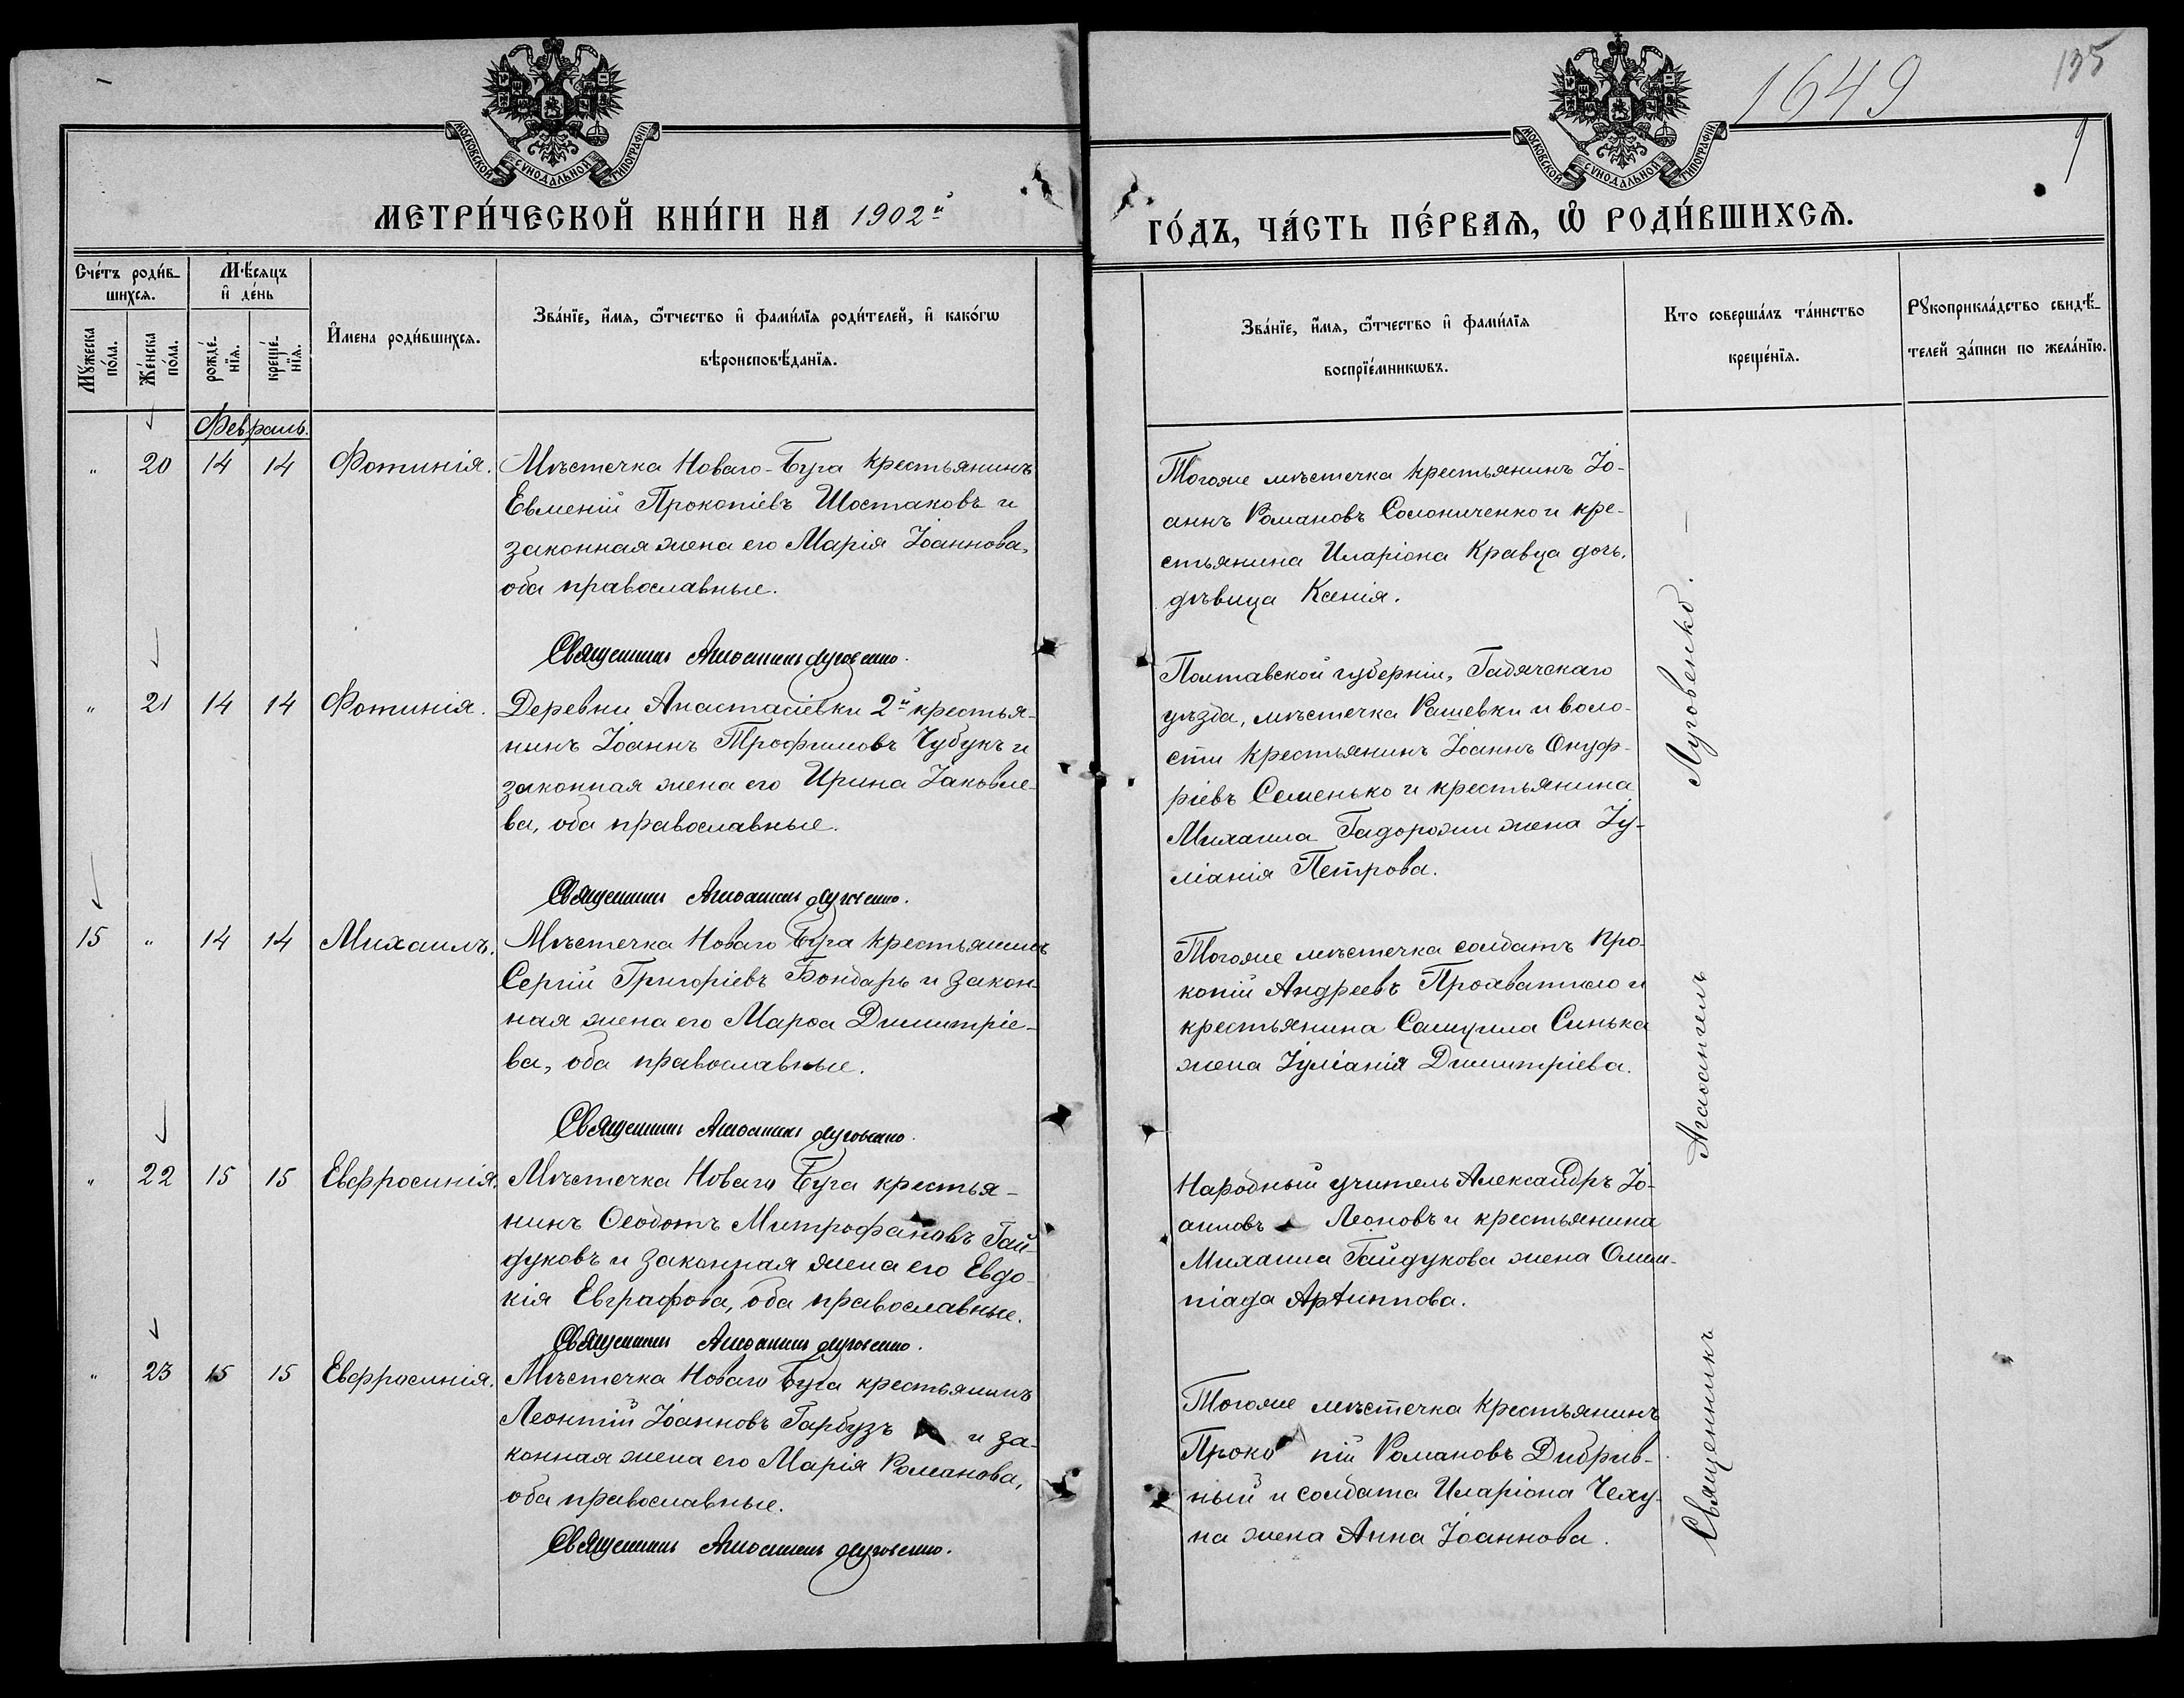 1649
135
МОСКОВСКОЙ СѴНОДАЛЬНОЙ ТИПОГРАФІИ
МОСКОВСКОЙ СѴНОДАЛЬНОЙ ТИПОГРАФІИ
МЕТРИ́ЧЕСКОЙ КНИ́ГИ НА 1902й
ГО́ДЪ, ЧА́СТЬ ПЕ́РВАѦ, Ѡ҆ РОДИ́ВШИХСѦ.
Сче́тъ роди́в-
шихсѧ.
Мꙋжеска по́ла.
Же́нска по́ла.
М́ѣсѧцъ
и҆ де́нь
рожде́-
нїѧ.
креще́-
нїѧ.
И҆мена роди́вшихсѧ.
Зва́нїе, и҆́мѧ, ѻ҆́тчество и҆ фами́лїѧ роди́телей, и҆ како́гѡ
вѣроисповѣ́данїѧ.
Зва́нїе, и҆́мѧ, ѻ҆́тчество и҆ фами́лїѧ
воспрїе́мникѡвъ.
Кто соверша́лъ та́инство
креще́нїѧ.
Рꙋкоприкла́дство свидѣ́-
телей за́писи по жела́нїю.
Февраль.
" 20 14 14 Фотинія.
Мѣстечка Новаго-Буга крестьянинъ
Евменій Прокопіевъ Шостаковъ и
законная жена его Марія Іоаннова,
оба православные.
Священникъ Агаѳангелъ Луговенко.
Тогоже мѣстечка крестьянинъ Іо-
аннъ Романовъ Солониченко и кре-
стьянина Иларіона Кравца дочь,
дѣвица Ксенія.
" 21 14 14 Фотинія.
Деревни Анастасіевки 2й крестья-
нинъ Іоаннъ Трофимовъ Чубукъ и
законная жена его Ирина Іаковле-
ва, оба православные.
Священникъ Агаѳангелъ Луговенко.
Полтавской губерніи, Гадячскаго
уѣзда, мѣстечка Рашевки и воло-
сти крестьянинъ Іоаннъ Онуф-
ріевъ Семенько и крестьянина
Михаила Гадорожи жена Іу-
ліанія Петрова.
15 " 14 14 Михаилъ.
Мѣстечка Новаго Буга крестьянинъ
Сергій Григоріевъ Бондарь и закон-
ная жена его Марѳа Димитріе-
ва, оба православные.
Священникъ Агаѳангелъ Луговенко.
Тогоже мѣстечка солдатъ Про-
копій Андреевъ Прохватило и
крестьянина Самуила Синька
жена Іуліанія Димитріева.
" 22 15 15 Евфросинія.
Мѣстечка Новаго Буга крестья-
нинъ Ѳеодотъ Митрофановъ Гай-
дуковъ и законная жена его Евдо-
кія Евграфова, оба православные.
Священникъ Агаѳангелъ Луговенко.
Народный учитель Александръ Іо-
анновъ Леоновъ и крестьянина
Михаила Гайдукова жена Олим-
піада Архиппова.
" 23 15 15 Евфросинія.
Мѣстечка Новаго Буга крестьянинъ
Леонтій Іоанновъ Гарбузъ и за-
конная жена его Марія Романова,
оба православные.
Священникъ Агаѳангелъ Луговенко.
Тогоже мѣстечка крестьянинъ
Проко пій Романовъ Дибрив-
ный и солдата Иларіона Чеху-
на жена Анна Іоаннова.
Священникъ Агаѳангелъ Луговенко.